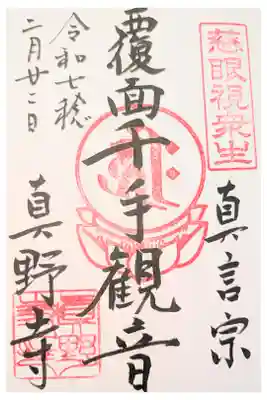 慈眼視衆生
真言宗
覆面千手観音
令和七年
二月廿二日
真野寺